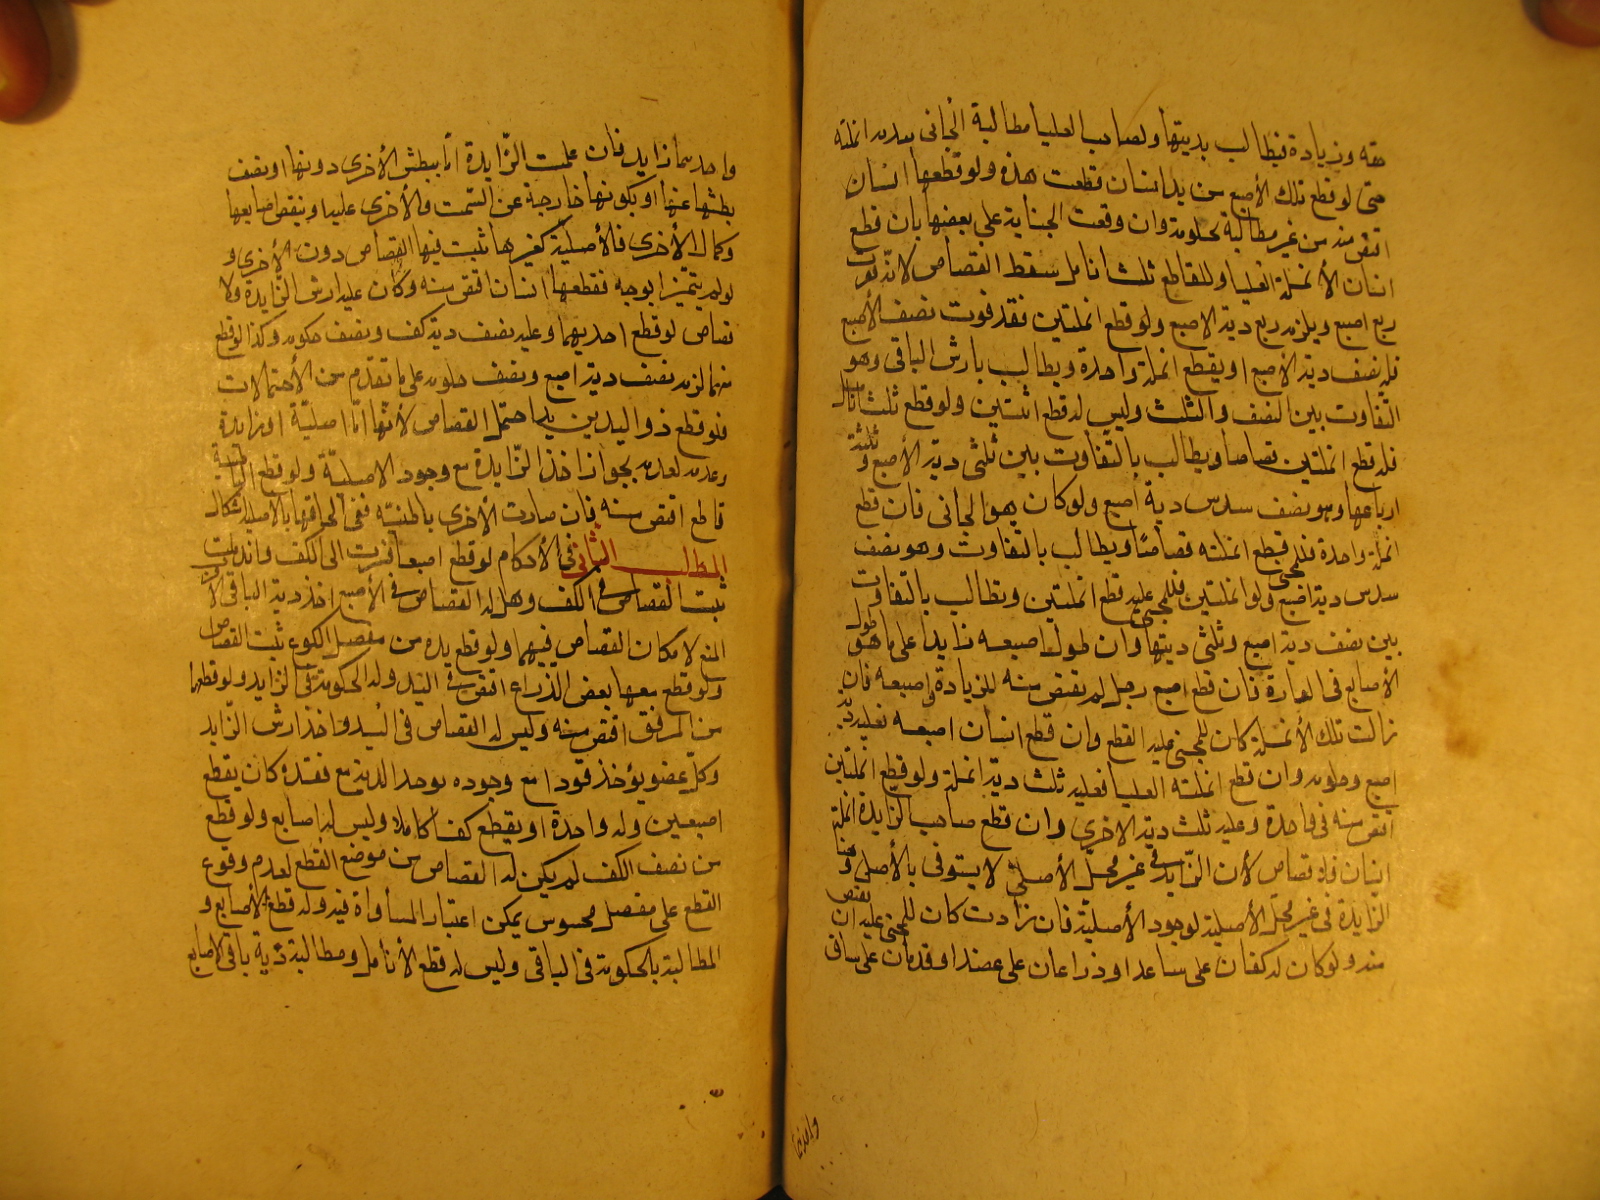 حقه وزيادة فيطالب بديتها ولصاحب العليا مطالبة الجاني بسدس انملة
حتى لو قطع تلك الأصبع من يد انسان قطعت هذه ولو قطعها انسان
اقتص منه من غير مطالبة بحكومة وان وقعت الجناية على بعضها بان قطع
انسان الأنملة العليا وللقاطع ثلث انامل سقط القصاص لانه يفوت
ربع اصبع ويلزمه ربع دية الاصبع ولو قطع انملتين فقد فوت نصف الأصبع
فله نصف دية الأصبع او يقطع انملة واحدة ويطالب بارش الباقي وهو
التفاوت بين النصف والثلث وليس له قطع اثنتين ولو قطع ثلث انامل
فله قطع انملتين قصاصا ويطالب بالتفاوت بين ثلثي دية الأصبع وثلثة
ارباعها وهو نصف سدس دية أصبع ولو كان هو الجاني فان قطع
انملة واحدة فللمجنى قطع انملته قصاصًا ويطالب بالتفاوت وهو نصف
سدس دية اصبع ولو انملتين فللمجنى عليه قطع انملتين ويطالب بالتفاوت
بين نصف دية اصبع وثلثي ديتها وان طول اصبعه زايدا على ما هو طول
الأصابع في العادة فان قطع اصبع رجل لم يقتص منه للزيادة في اصبعه فان
زالت تلك الأنملة كان للمجنى عليه القطع وان قطع انسان اصبعه فعليه دية
اصبع وحكومة وان قطع انملته العليا فعليه ثلث دية انملة ولو قطع انملتين
اقتص منه في واحدة وعليه ثلث دية الاخرى وان قطع صاحب الزايدة انملة
انسان فلا قصاص لأن الزايد في غير محل الأصلي لا يستوفى بالأصلي وهنا
الزايدة في غير محل الأصلية لوجود الأصلية فان زادت كان للمجنى عليه ان يقتص
منه ولو كان له كفان على ساعد او ذراعان على عضد او قدمان على ساق
واحدهما
واحدهما زايد فان علمت الزايدة اما ببطش الأخرى دونها او نقص
بطشها عنها او بكونها خارجة عن السمت والأخرى عليه او بنقص اصابعها
وكمال الأخرى فالأصلية كغيرها ثبت فيها القصاص دون الأخرى و
لو لم يتميزا بوجه فقطعها انسان اقتص منه وكان عليه ارش الزايدة ولا
قصاص لو قطع احديهما وعليه نصف دية كف ونصف حكومة وكذا لو قطع
منهما لزمه نصف دية اصبع ونصف حكومة على ما تقدم من الأحتمالات
فلو قطع ذو اليدين يدا احتمل القصاص لأنها اما اصلية او زايدة
وعدمه لعدم جواز اخذ الزايدة مع وجود الاصلية ولو قطع الباطشة
قاطع اقتص منه فان صارت الأخرى باطشة ففي الحاقها بالاصلية اشكال
المطلب الثاني في الأحكام لو قطع اصبعا فسرت الى الكف واندملت
ثبت القصاص في الكف وهل له القصاص في الأصبع واخذ دية الباقي الأقرب
المنع لامكان القصاص فيهما ولو قطع يده من مفصل الكوع ثبت القصاص
ولو قطع معها بعض الذراع اقتص في اليد وله الحكومة في الزايد ولو قطعها
من المرفق اقتص منه وليس له القصاص في اليد واخذ ارش الزايد
وكل عضو يؤخذ قودا مع وجوده يوخذ الدية مع فقده كان يقطع
اصبعين وله واحدة او يقطع كفا كاملا وليس له اصابع ولو قطع
من نصف الكف لم يكن له القصاص من موضع القطع لعدم وقوع
القطع على مفصل محسوس يمكن اعتبار المساواة فيه وله قطع الأصابع و
المطالبة بالحكومة في الباقي وليس له قطع الأنامل ومطالبة دية باقي الاصابع